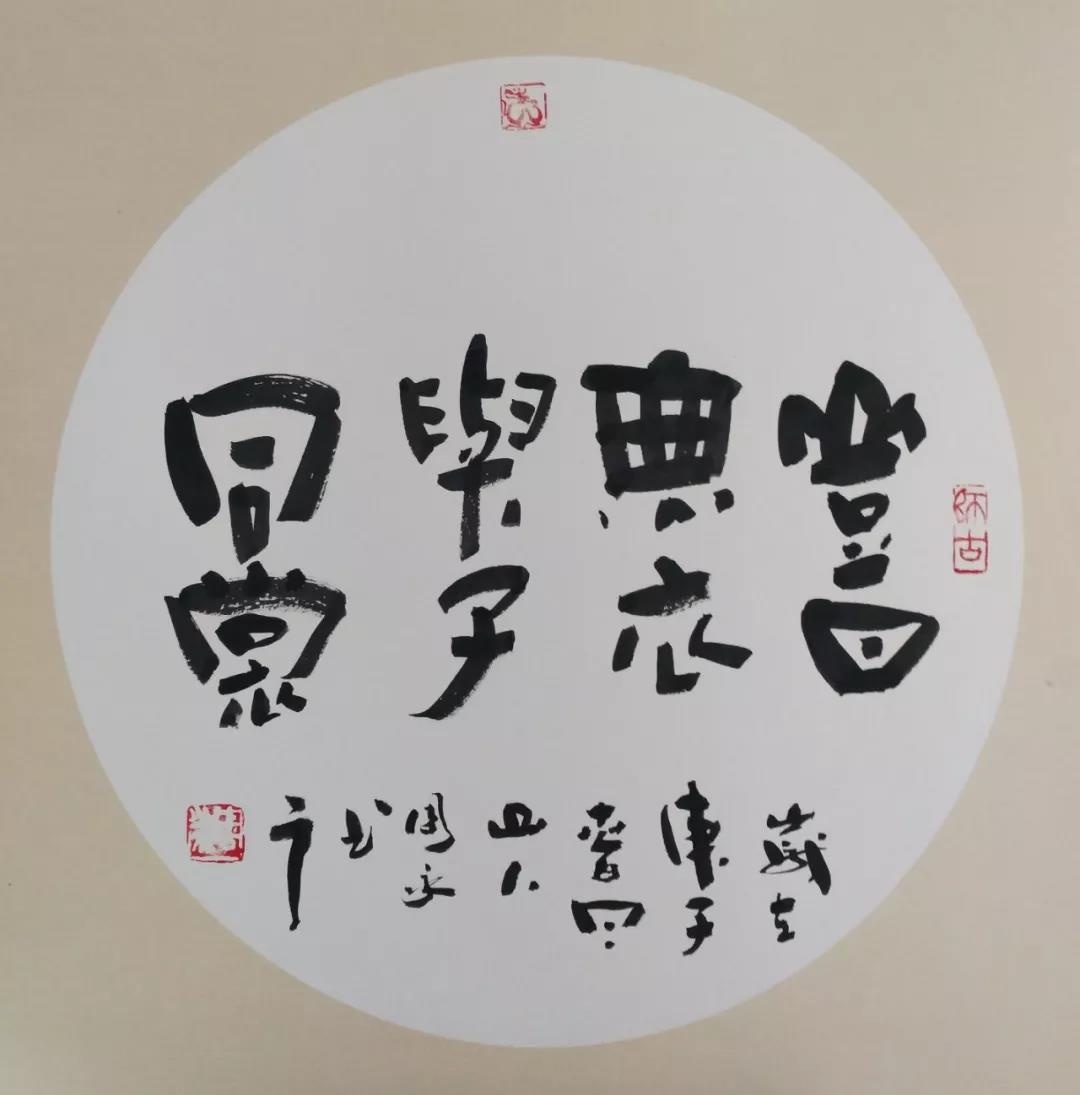 豈曰
無衣
與子
同裳
歲在
庚子
春
人
周永
书
師古